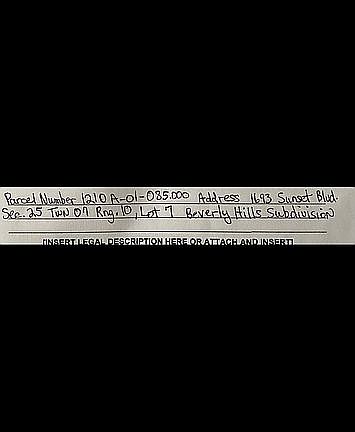 Parcel Number 1210A-01-085.000 Address 1693 Sunset Blvd.
Sec. 25 Twn 07 Rng. 10, Lot 7 Beverly Hills Subdivision
(INSERT LEGAL DESCRIPTION HERE OR ATTACH AND INSERT)